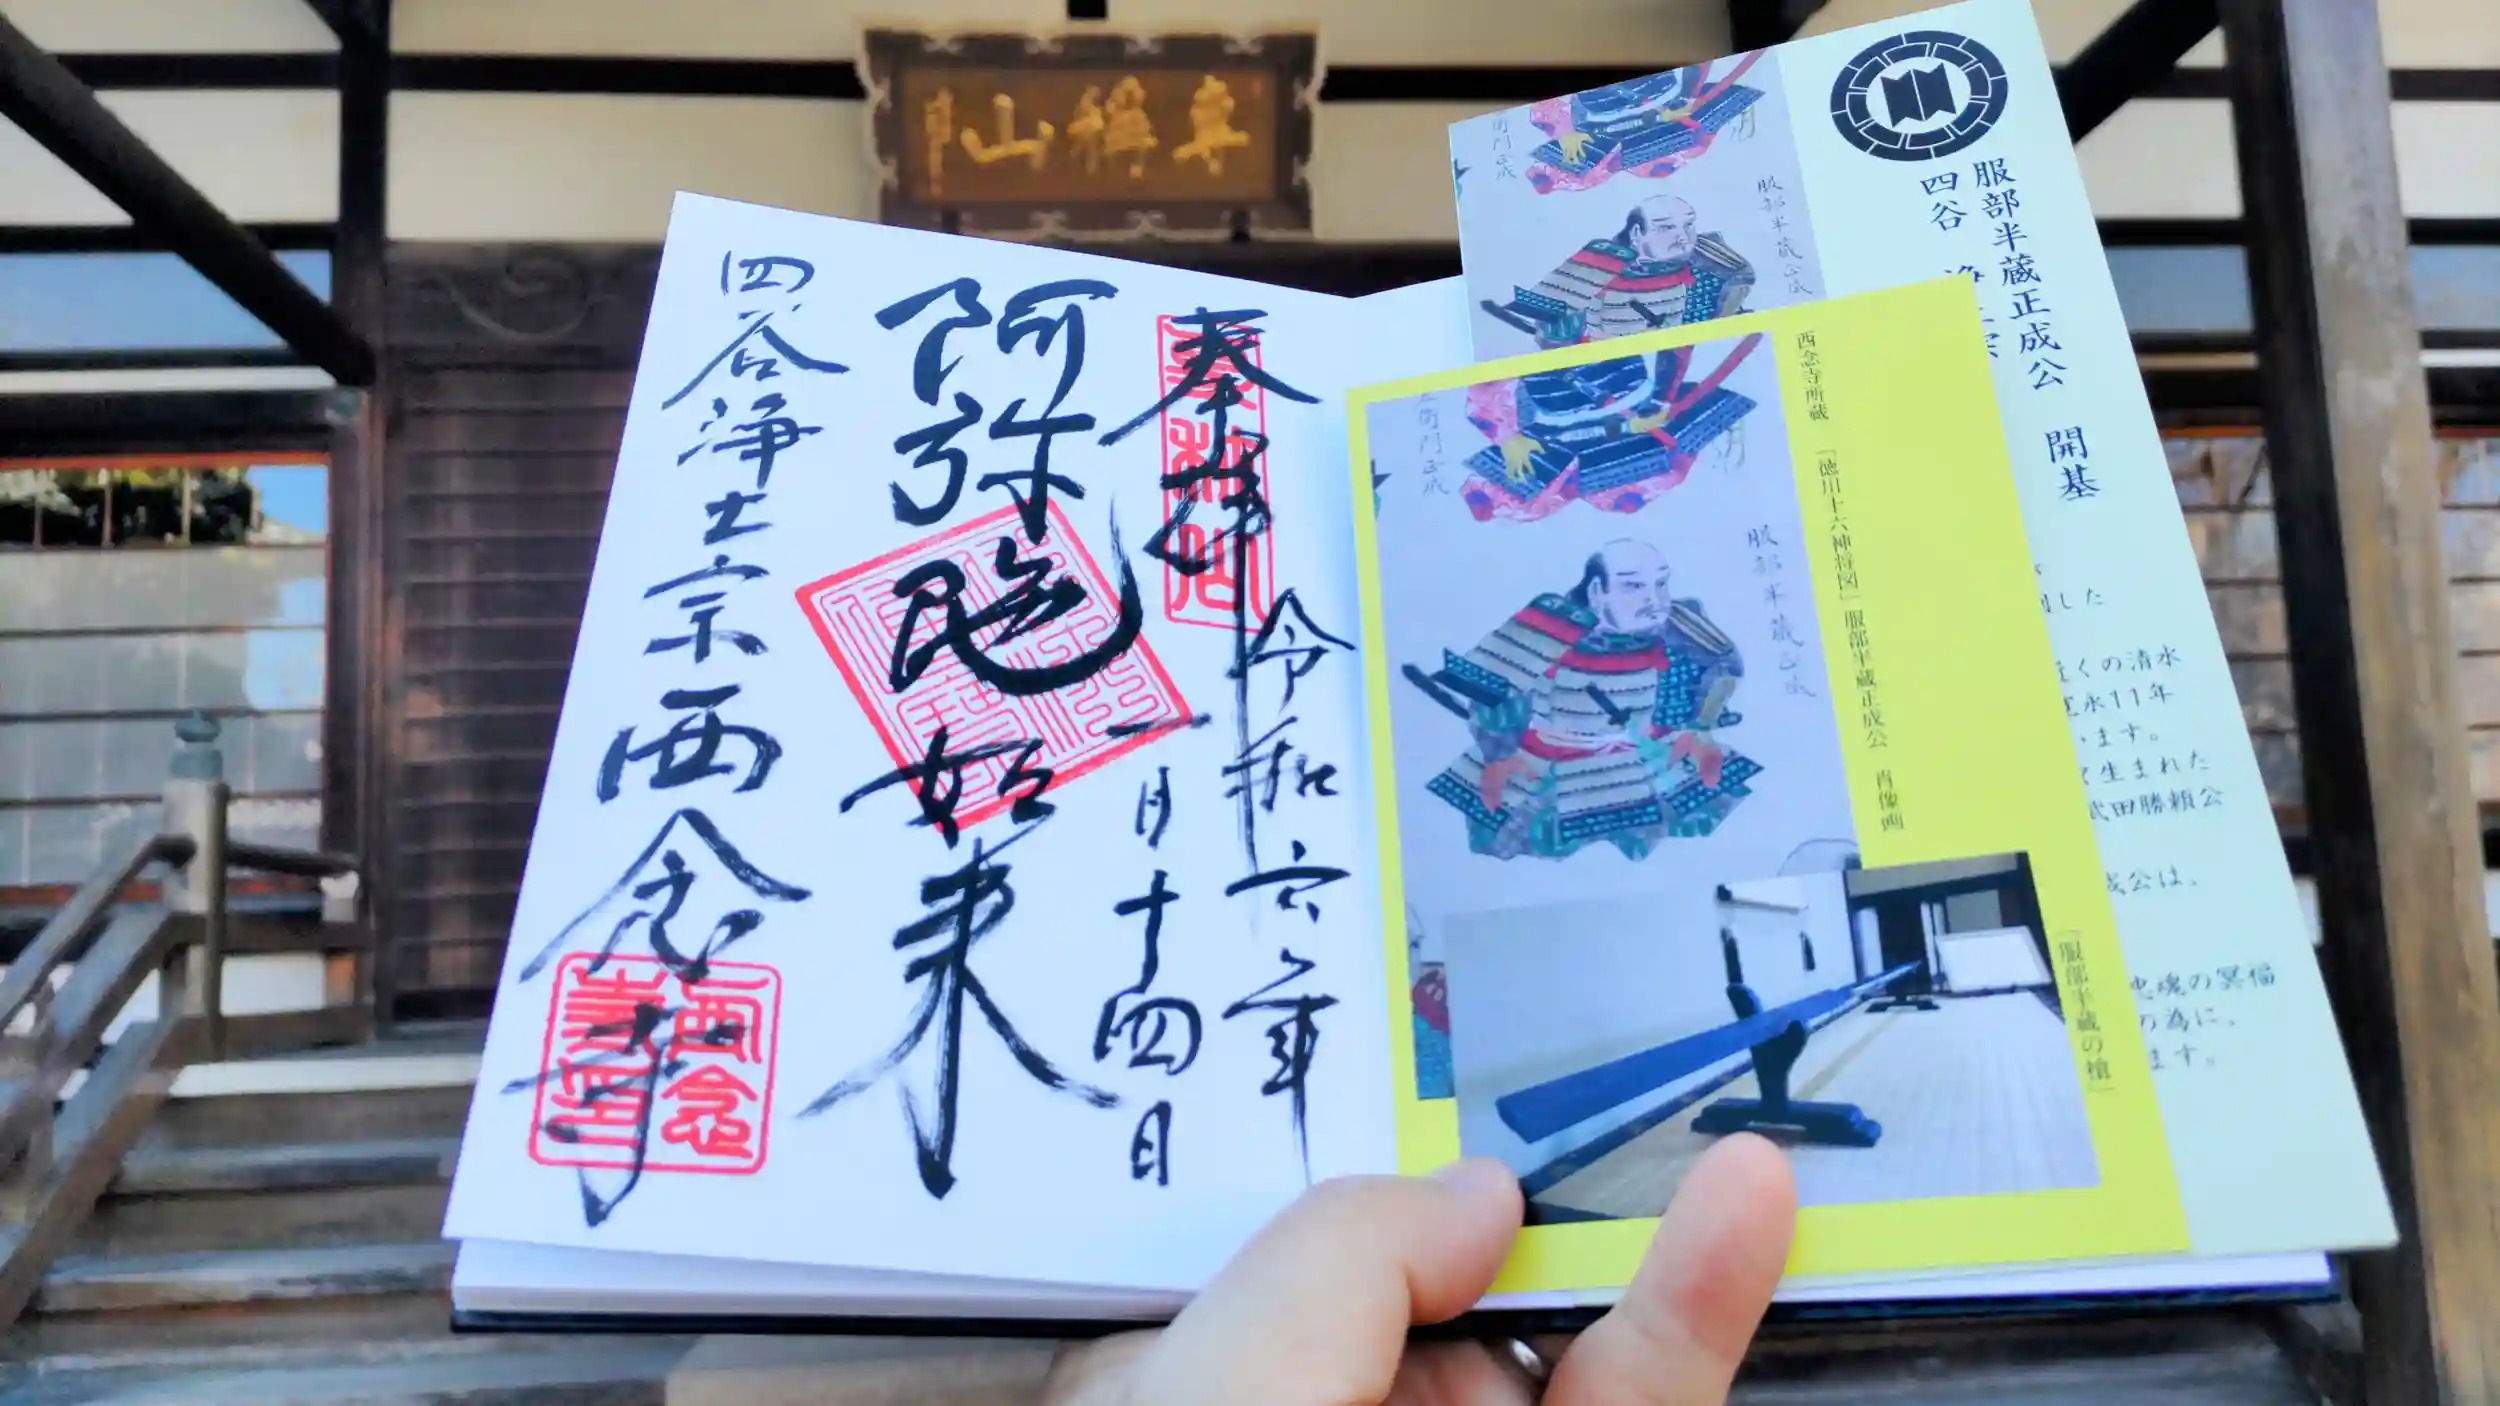 専稱山
奉拝
令和六年
一月十四日
阿弥陀如来
四谷浄土宗西念寺
服部半蔵正成公 開基
四谷
服部半蔵正成
衛門正成
西念寺所蔵 「徳川十六神将図」服部半蔵正成公 肖像画
服部半蔵正成
衛門正成
「服部半蔵の槍」
した
くの清水
永11年
ます。
生まれた
武田勝頼公
成公は、
忠魂の冥福
の為に、
ます。